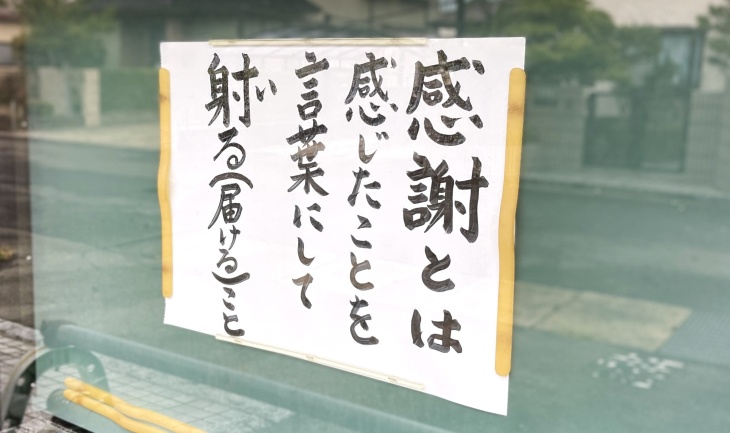 感謝とは
感じたことを
言葉にして
射い る(届ける)こと